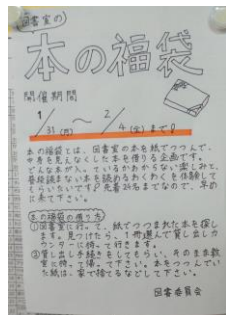 図書室の
本の福袋
開催期間
1/31(月)～2/4(金)まで!
本の福袋とは、図書室の本を紙でつつんで、
中身を見えなくした本を借りる企画です。
どんな本が入っているかわからない楽しみと、
普段読まない本を読めるわくわくを体験して
もらいたいです!先着24名までなので、早め
に来て下さい。
本の福袋の借り方
①図書室に行って、紙でつつまれた本を探し
ます。見つけたら、1冊選んで貸し出しカ
ウンターに持って行きます。
②貸し出し手続きをしてもらい、そのまま教
室に持って帰って下さい。本をつつんでい
た紙は、家で捨てるなどして下さい。
図書委員会